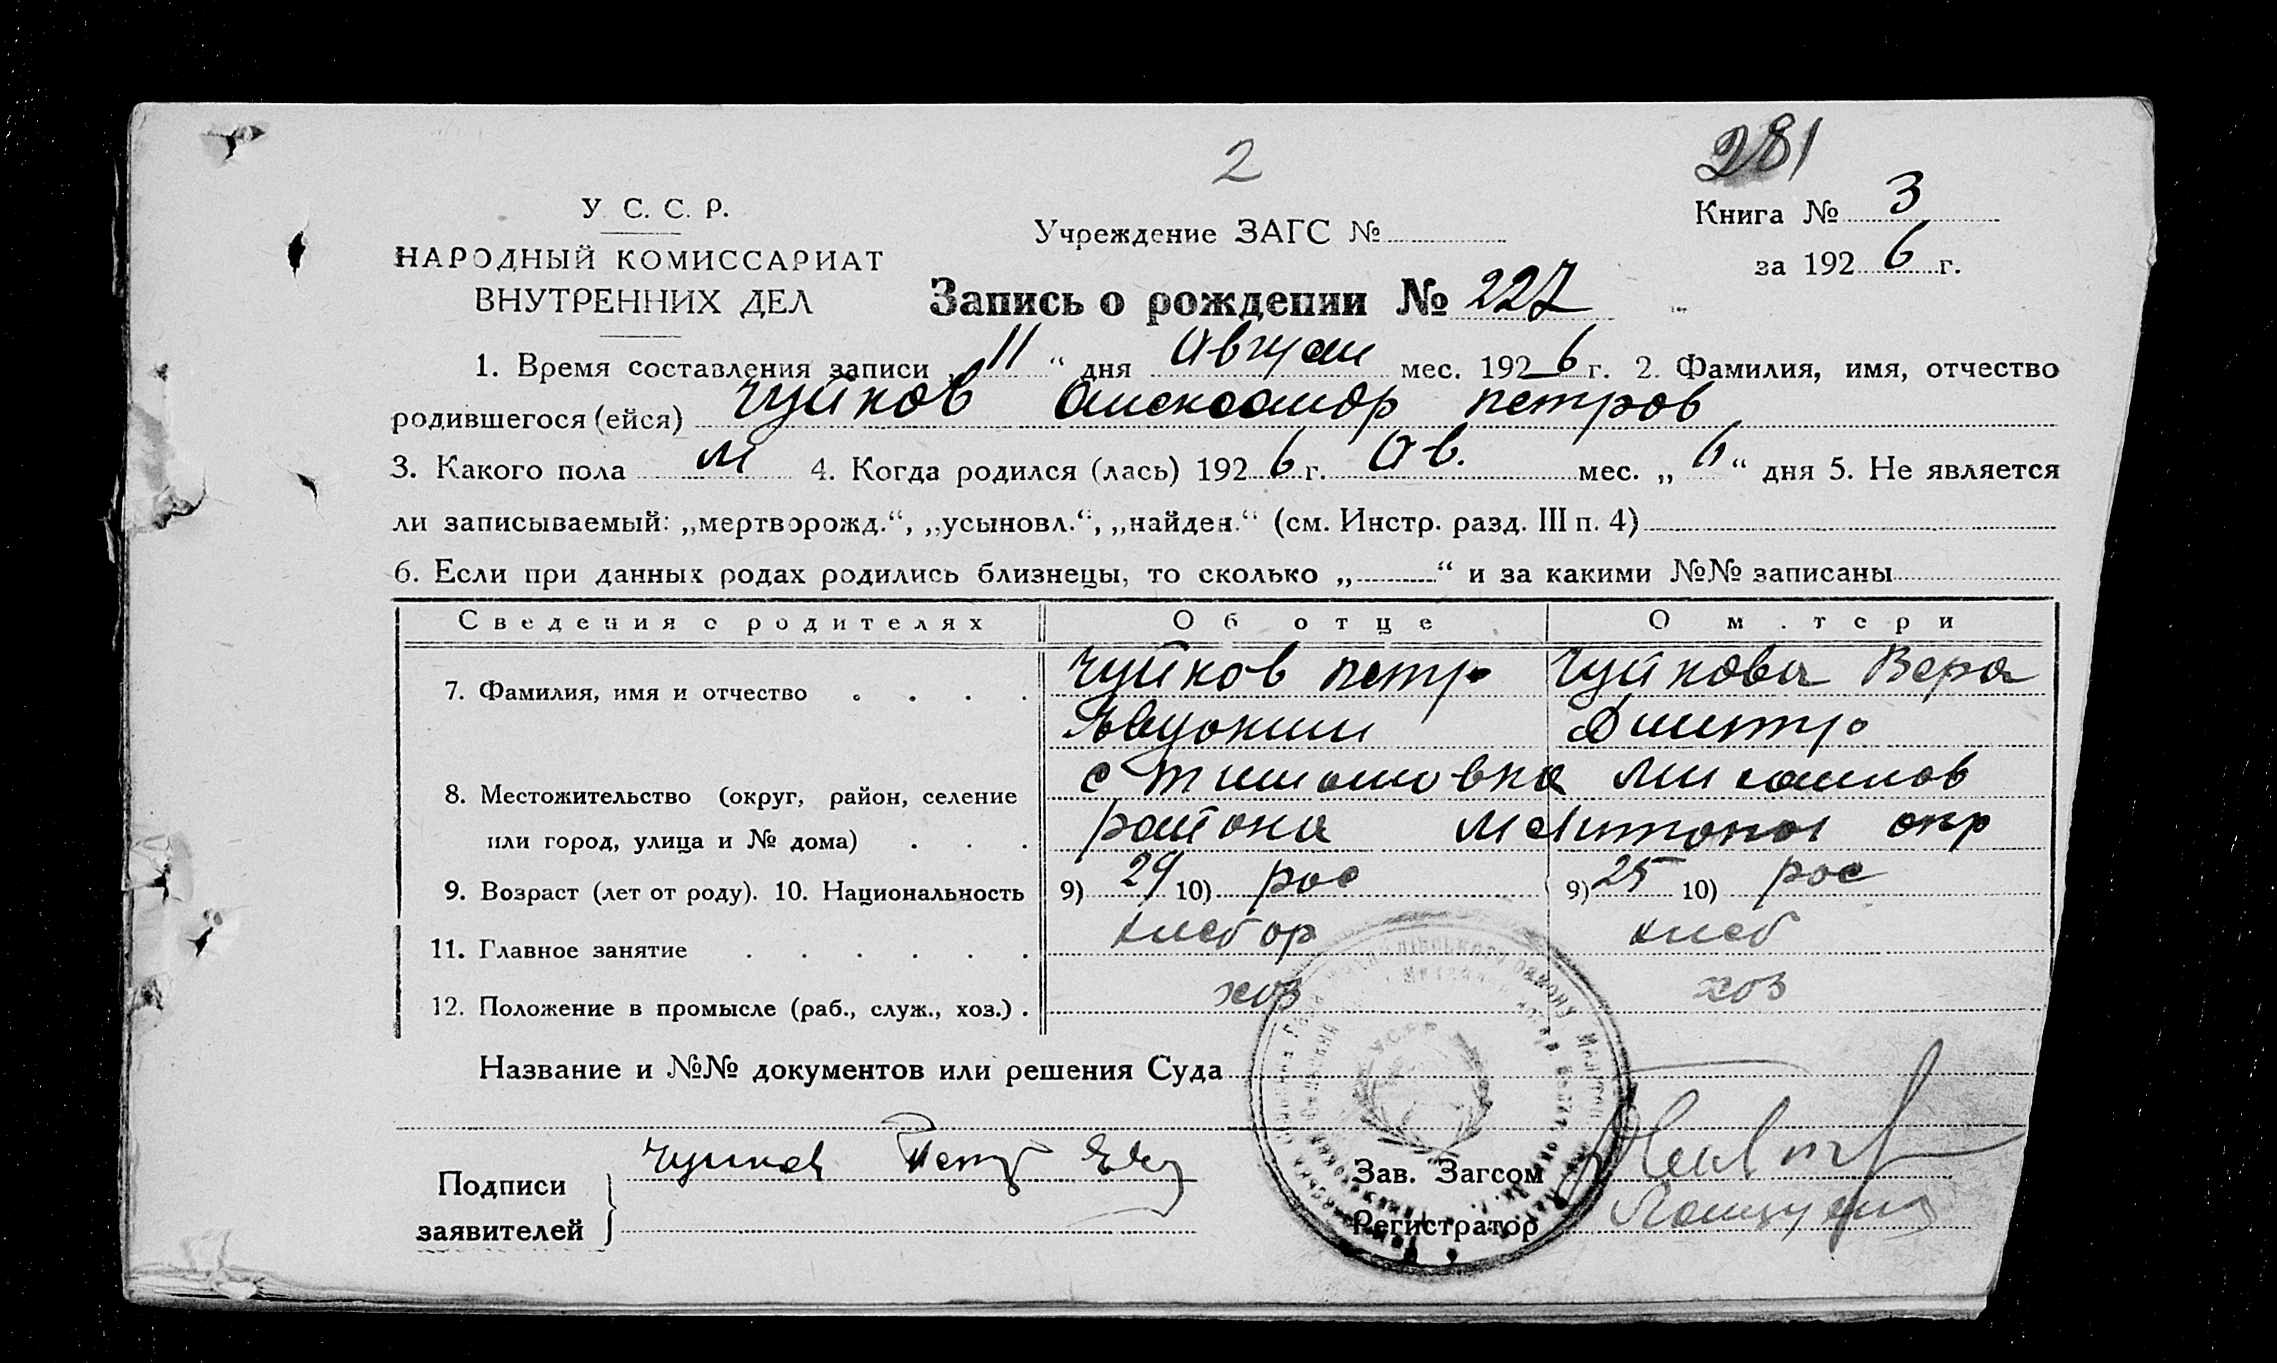 2
281
У. С. С. Р.
Книга № 3
Учреждение ЗАГС №
НАРОДНЫЙ КОМИССАРИАТ
за 1926 г.
ВНУТРЕННИХ ДЕЛ
Запись о рождении № 227
1. Время составления записи „11“ дня Август мес. 1926 г. 2. Фамилия, имя, отчество
родившегося (ейся) Чуйков Александр Петров
3. Какого пола м 4. Когда родился (лась) 1926 г. Ав. мес. „6“ дня 5. Не является
ли записываемый: „мертворожд.“, „усыновл.“, „найден.“ (см. Инстр. разд. III п. 4)
6. Если при данных родах родились близнецы, то сколько „ “ и за какими №№ записаны
Сведения о родителях Об отце О м.тери
7. Фамилия, имя и отчество Чуйков Петр Чуйкова Вера
Явдоким Дмитр
8. Местожительство (округ, район, селение с Тимошовка Михайлов
или город, улица и № дома) района Мелитопол окр
9. Возраст (лет от роду). 10. Национальность 9) 29 10) рос 9) 25 10) рос
11. Главное занятие хлебор хлеб
12. Положение в промысле (раб., служ., хоз.) хоз хоз
Название и №№ документов или решения Суда
УСРР
Подписи
заявителей
Чуйков Петр Явд
Зав. Загсом
Регистратор